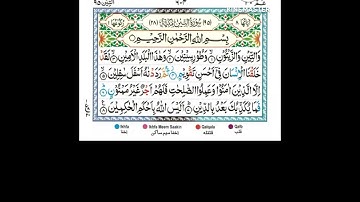 (٩٥) سُوْرَةُ التِّيْنِ مَكِّيَّةٌ (٢٨)
بِسْمِ اللّٰهِ الرَّحْمٰنِ الرَّحِيْمِ
وَالتِّيْنِ وَالزَّيْتُوْنِ وَطُوْرِ سِيْنِيْنَ وَهٰذَا الْبَلَدِ الْاَمِيْنِ لَقَدْ
خَلَقْنَا الْاِنْسَانَ فِيْ اَحْسَنِ تَقْوِيْمٍ ثُمَّ رَدَدْنٰهُ اَسْفَلَ سٰفِلِيْنَ
اِلَّا الَّذِيْنَ اٰمَنُوْا وَعَمِلُوا الصّٰلِحٰتِ فَلَهُمْ اَجْرٌ غَيْرُ مَمْنُوْنٍ
فَمَا يُكَذِّبُكَ بَعْدُ بِالدِّيْنِ اَلَيْسَ اللّٰهُ بِاَحْكَمِ الْحٰكِمِيْنَ
Ikhfa Ikhfa Meem Saakin Qalqala Qalb
اخفا اخفا میم ساکن قلقلہ قلب